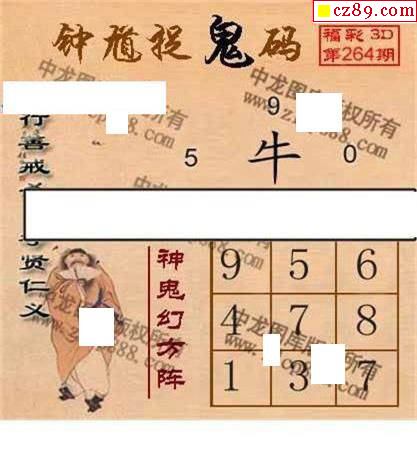 cz89.com
钟馗捉鬼码
福彩3D
第264期
9
5 牛 0
行善戒
贤仁义
神鬼幻方阵
9 5 6
4 7 8
1 3 7
中龙图库版权所有